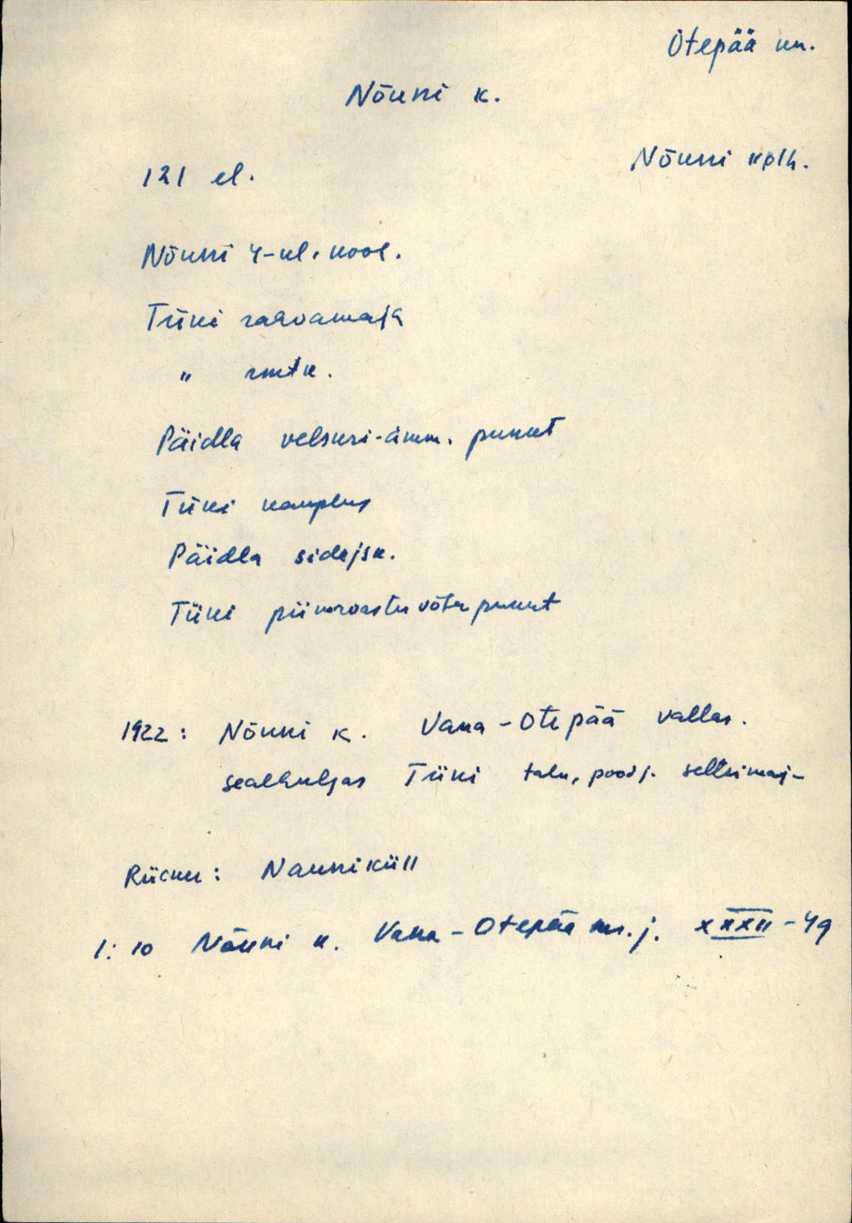 Otepää kn.
Nõuni k.
Nõuni kplh.
121 el.
Nõuni 4-kl. kool.
Tiiki rahvamaja
" rmtk.
Päidla velskri-ämm. punkt
Tiiki kauplus
Päidla sidejsk.
Tiiki piimavastuvõtu punkt
1922: Nõuni k. Vana-Otepää vallas.
sealhulgas Tiiki talu, pood j. seltsimaj-
Rücker: Nauniküll
1:10 Nõuni k. Vana-Otepää mr. j. XXXII-49